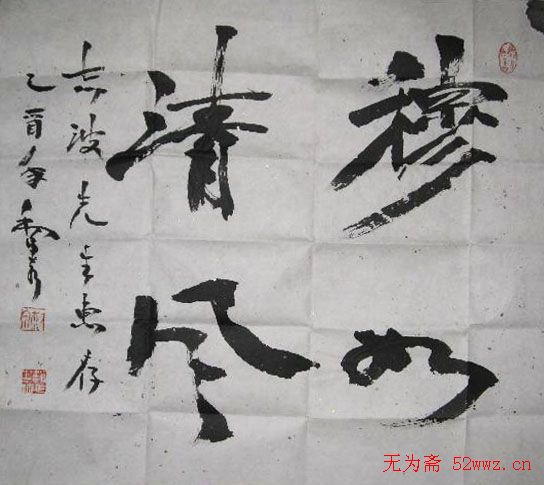 穆如
清风
志波先生惠存
乙酉年
无为斋 52wwz.cn